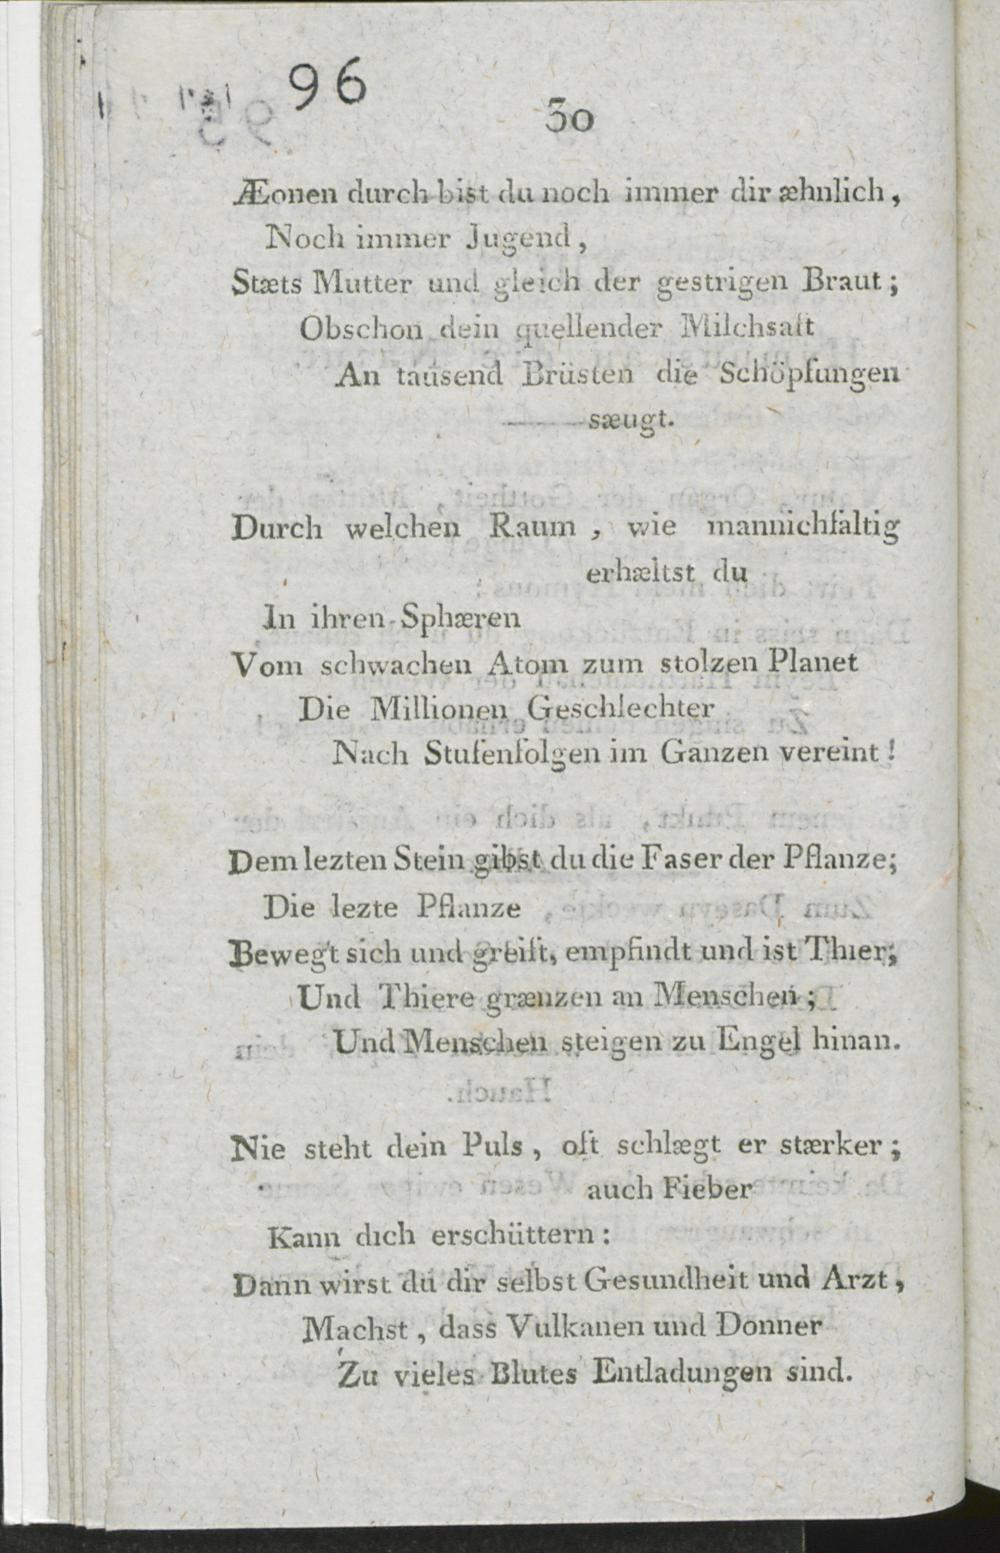 96
30
Æonen durch bist du noch immer dir æhnlich,
Noch immer Jugend,
Stæts Mutter und gleich der gestrigen Braut;
Obschon dein quellender Milchsaft
An tausend Brüsten die Schöpfungen
sæugt.
Durch welchen Raum, wie mannichfaltig
erhæltst du
In ihren Sphæren
Vom schwachen Atom zum stolzen Planet
Die Millionen Geschlechter
Nach Stufenfolgen im Ganzen vereint!
Dem lezten Stein gibst du die Faser der Pflanze;
Die lezte Pflanze
Bewegt sich und greift, empfindt und ist Thier;
Und Thiere grænzen an Menschen;
Und Menschen steigen zu Engel hinan.
Nie steht dein Puls, oft schlægt er stærker;
auch Fieber
Kann dich erschüttern:
Dann wirst du dir selbst Gesundheit und Arzt,
Machst, dass Vulkanen und Donner
Zu vieles Blutes Entladungen sind.